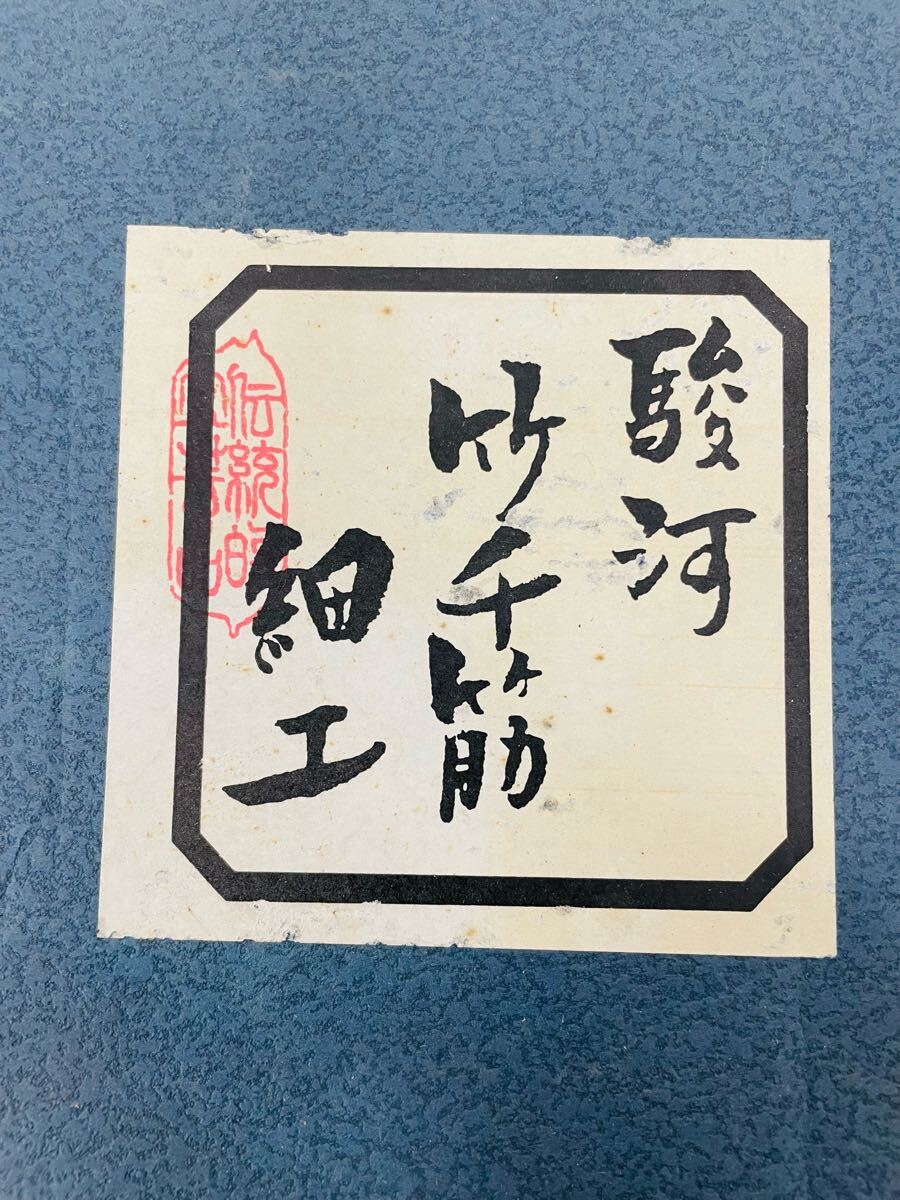 駿河
竹千筋
細工
伝統的
工芸品